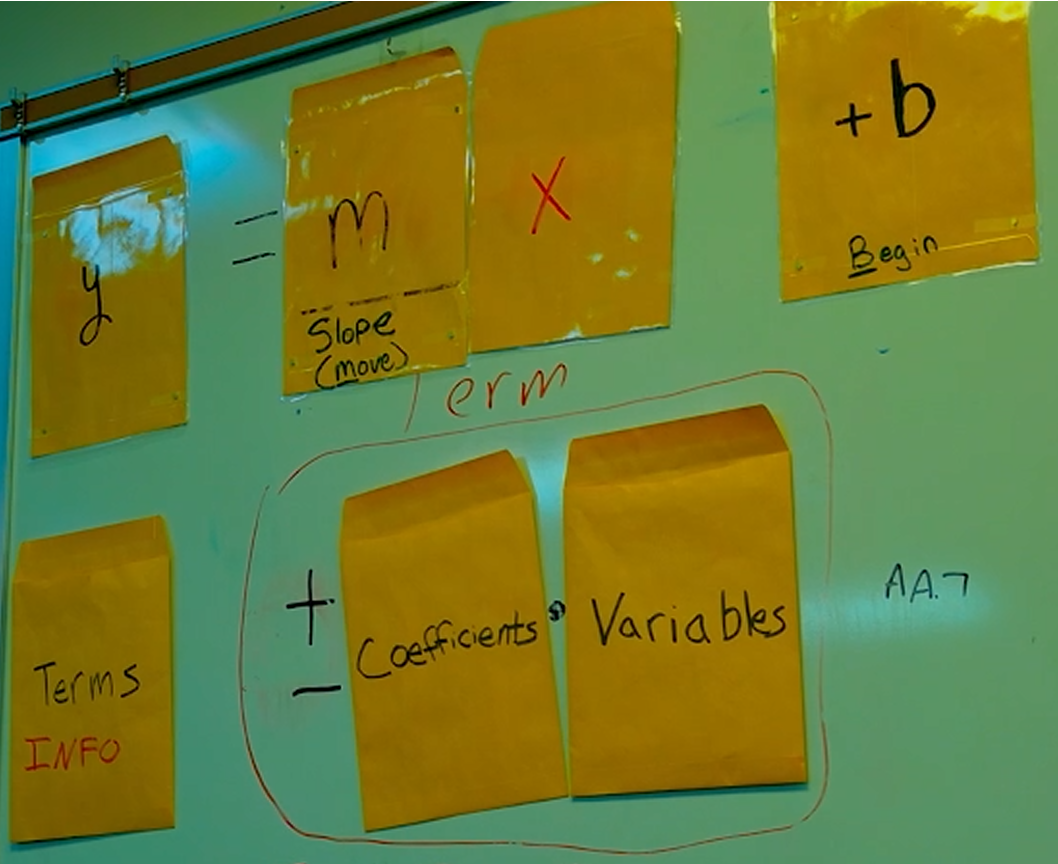 y = m x + b
Slope
(move)
Begin
Term
+
−
Coefficients • Variables
AA.7
Terms
INFO